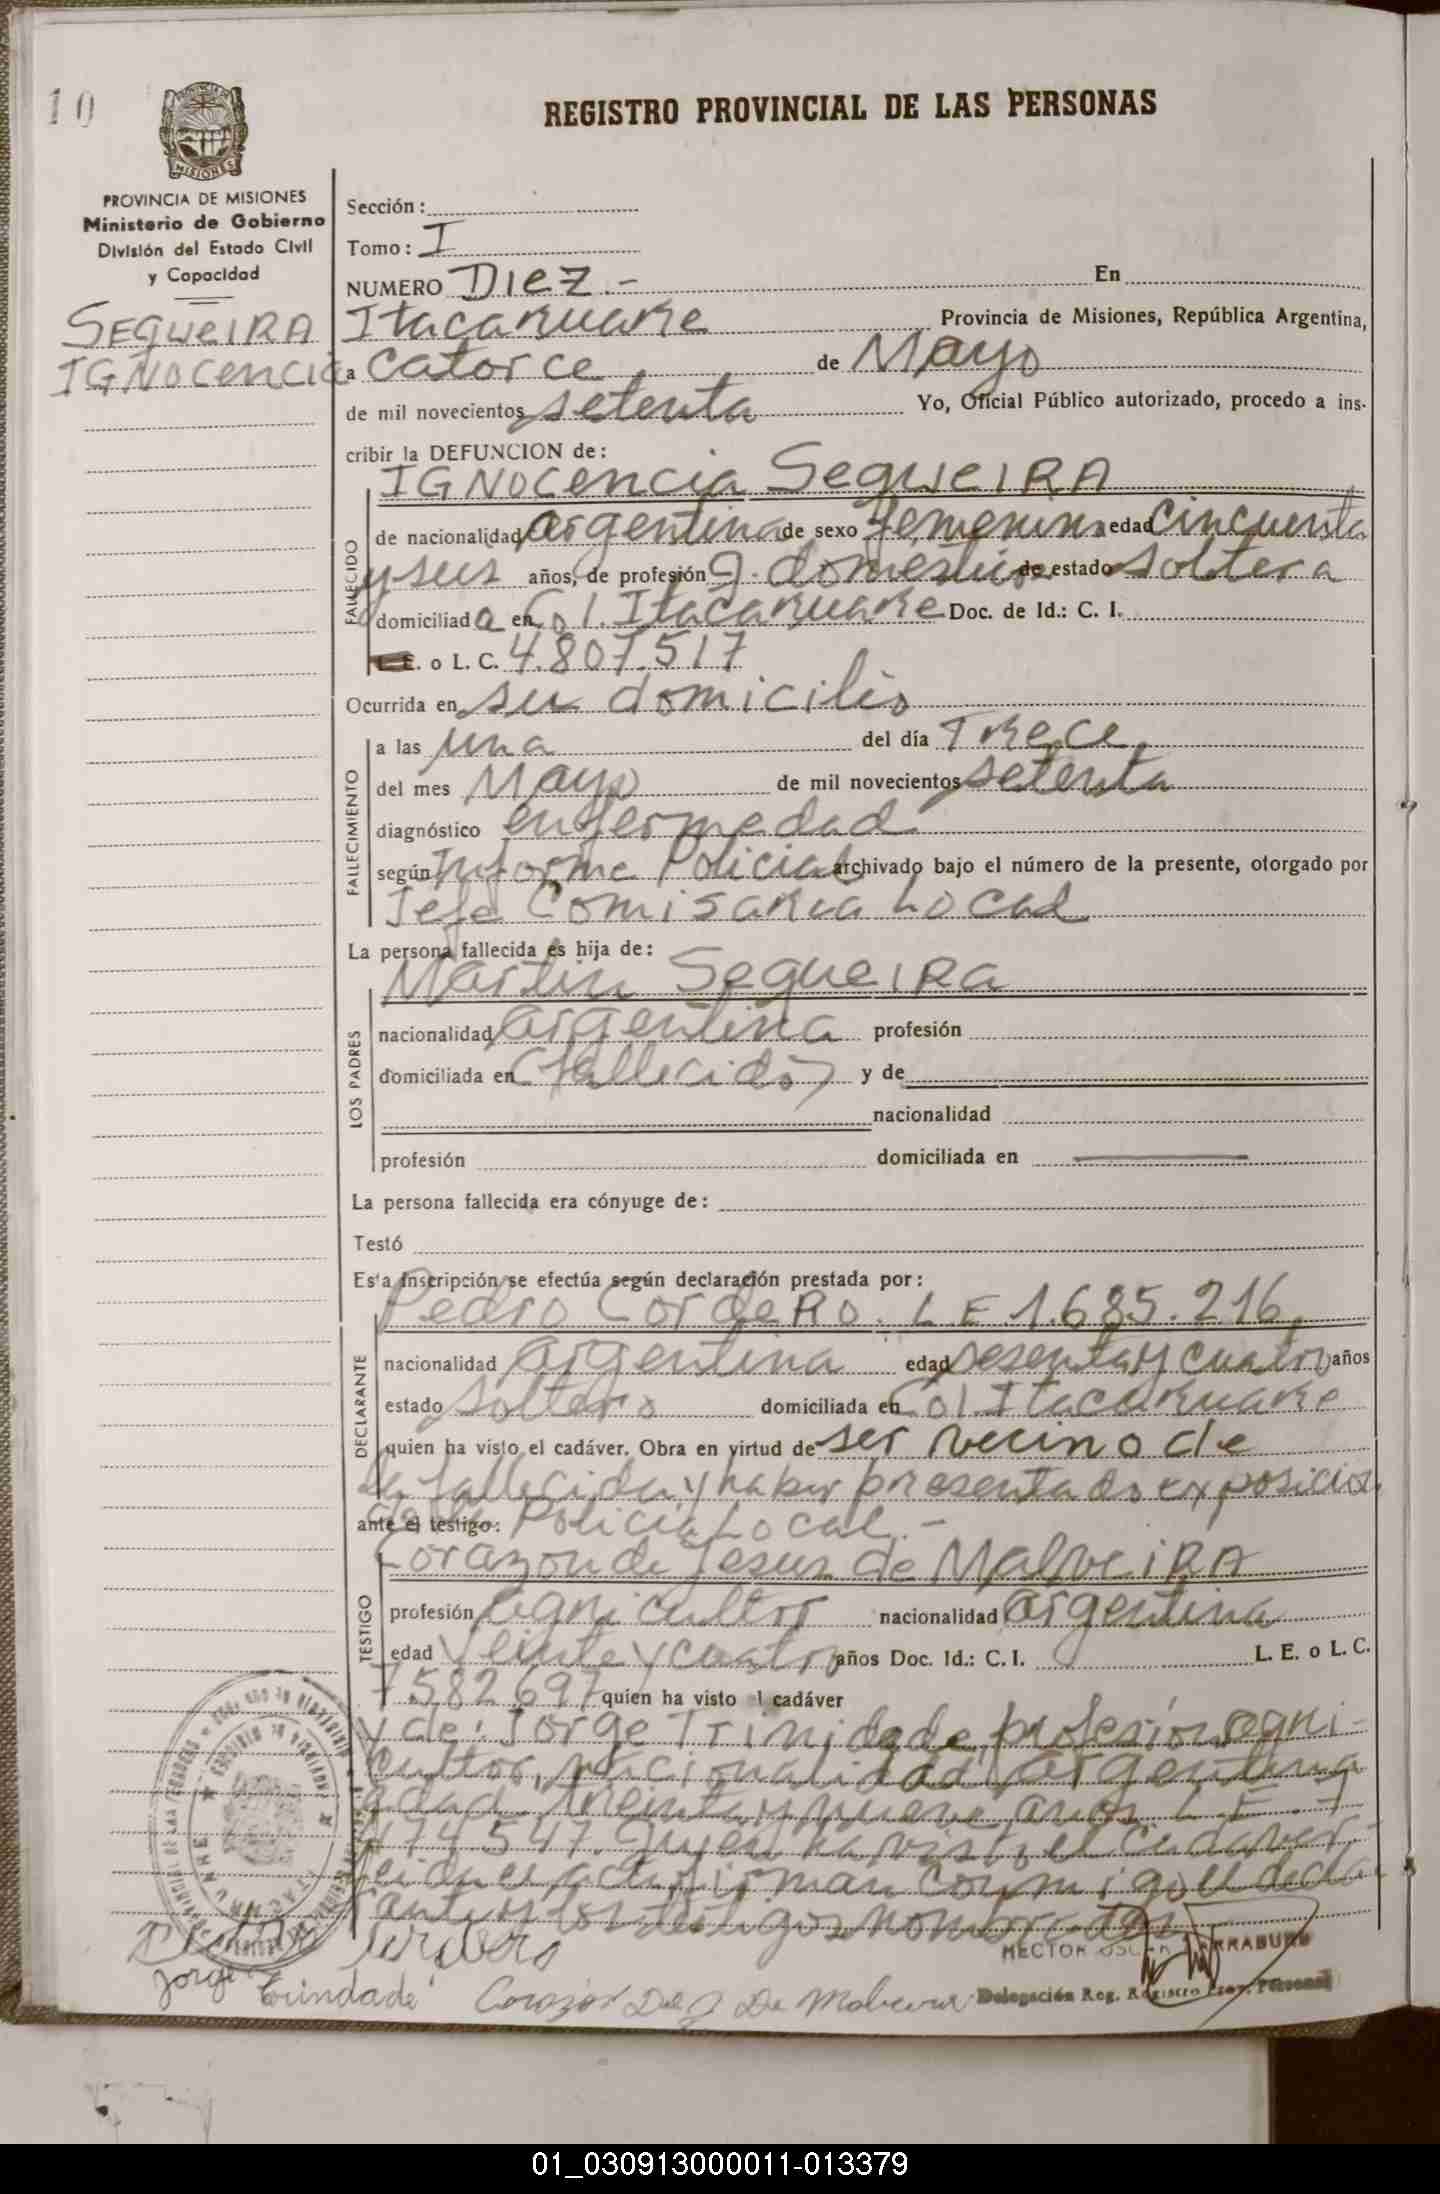 10
PROVINCIA DE
MISIONES
REGISTRO PROVINCIAL DE LAS PERSONAS
PROVINCIA DE MISIONES
Ministerio de Gobierno
División del Estado Civil
y Capacidad
SEQUEIRA
IGNOCENCIA
Sección:
Tomo: I
NUMERO Diez.- En
Itacaruare Provincia de Misiones, República Argentina,
a catorce de Mayo
de mil novecientos setenta Yo, Oficial Público autorizado, procedo a ins-
cribir la DEFUNCION de:
IGNOCENCIA SEQUEIRA
FALLECIDO
de nacionalidad argentina de sexo femenino edad cincuenta
y seis años, de profesión q. domesticos de estado soltera
domiciliada en Col. Itacaruare Doc. de Id.: C. I.
L.E. o L. C. 4.807.517
Ocurrida en su domicilio
FALLECIMIENTO
a las una del día Trece
del mes Mayo de mil novecientos setenta
diagnóstico enfermedad
según Informe Policial archivado bajo el número de la presente, otorgado por
Jefe Comisaria Local
La persona fallecida es hija de:
Martin Sequeira
LOS PADRES
nacionalidad argentina profesión
domiciliada en (fallecido) y de
nacionalidad
profesión domiciliada en
La persona fallecida era cónyuge de:
Testó
Esta inscripción se efectúa según declaración prestada por:
Pedro Cordero. L E 1.685.216,
DECLARANTE
nacionalidad argentina edad sesenta y cuatro años
estado soltero domiciliada en Col. Itacaruare
quien ha visto el cadáver. Obra en virtud de ser vecino de
la fallecida y haber presentado exposicion
ante el testigo: Policia Local.-
Corazon de Jesus de MALVEIRA
TESTIGO
profesión agricultor nacionalidad argentina
edad Veinte y cuatro años Doc. Id.: C. I. L. E. o L. C.
7.582.697 quien ha visto el cadáver
y de: Jorge Trinidade, profesión agri-
cultor, nacionalidad argentina
edad treinta y nueve años L E 7
474.547. Quien ha visto el cadaver,
leida el acta firman conmigo el decla-
rante y los testigos nombrados
Jorge Trindade
Corazon De J De Malveira
HECTOR OSCAR
Delegación Reg. Registro Prov. Personas
01_030913000011-013379